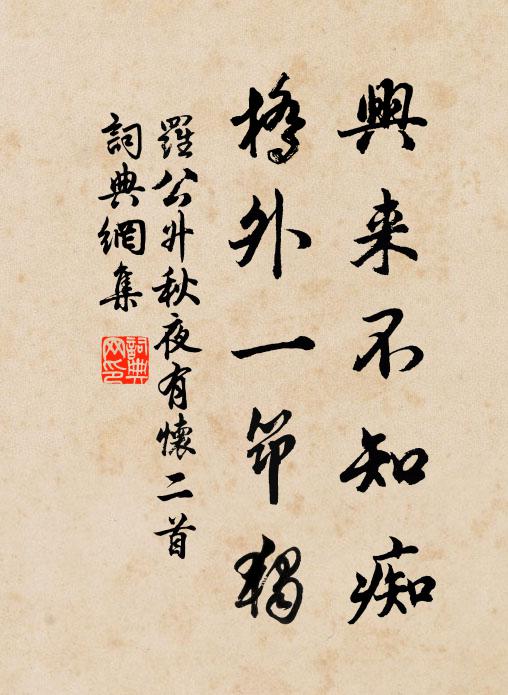 興来不知痴
橋外一笻獨
羅公升秋夜有懷二首
詞典網集
詞典网印